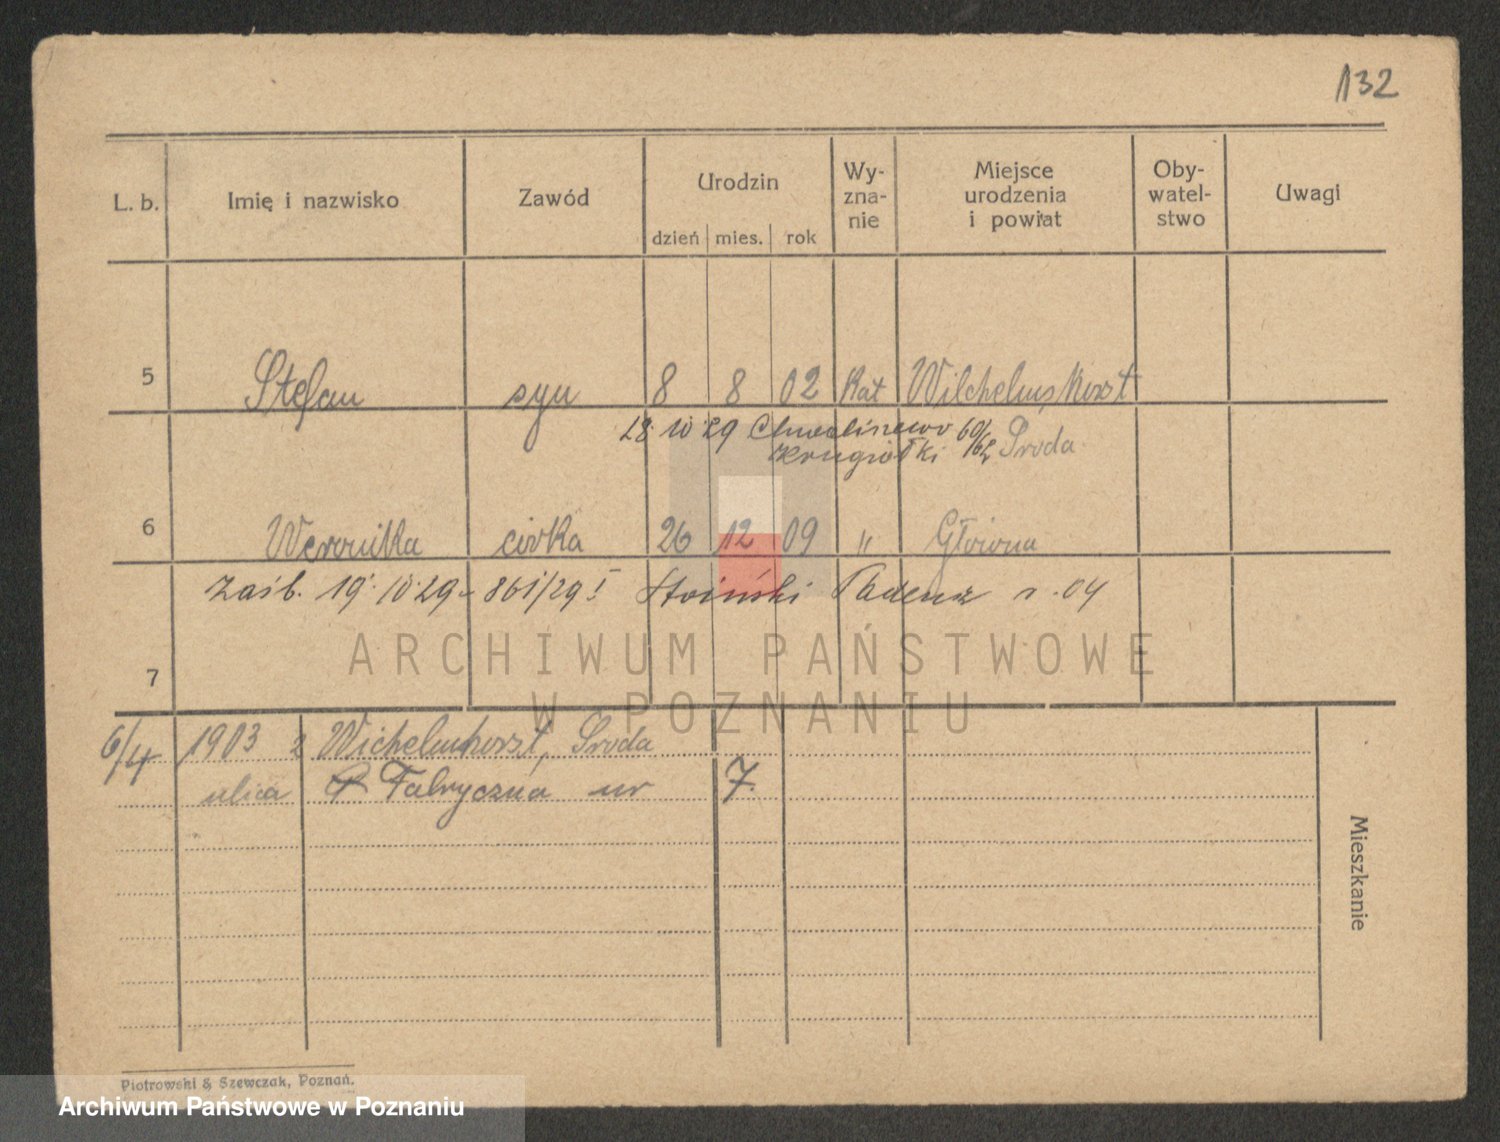 132
L. b. Imię i nazwisko Zawód Urodzin dzień mies. rok Wy- zna- nie Miejsce urodzenia i powiat Oby- watel- stwo Uwagi
5 Stefan syn 8 8 02 kat Wilchelmskorst
28 10 29 Chwaliszewo 60/62 Środa
6 Weronika córka 26 12 09 " Główna
Zaśb. 19. 10 29 - 861/29 I Stoiński Tadeusz r. 04
ARCHIWUM PAŃSTWOWE
7
W POZNANIU
6/4 1903 z Wichelmhorst, Środa
ulica Fabryczna nr 7.
Mieszkanie
Piotrowski & Szewczak, Poznań.
Archiwum Państwowe w Poznaniu